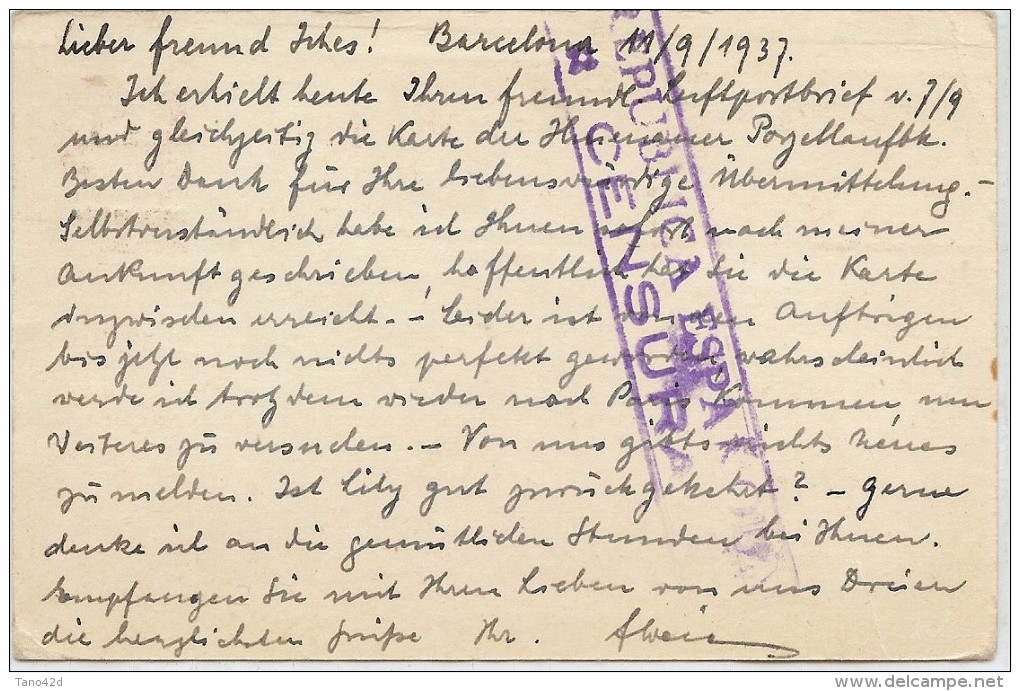 Lieber Freund Iches! Barcelona 11/9/1937.
Ich erhielt heute Ihren freundl. Luftpostbrief v. 7/9
und gleichzeitig die Karte der Porzellanfbk.
Besten Dank für Ihre liebenswürdige Übermittelung. -
Selbstverständlich habe ich Ihnen sofort nach meiner
Ankunft geschrieben, hoffentlich hat Sie die Karte
inzwischen erreicht. - Leider ist von den Aufträgen
bis jetzt noch nichts perfekt geworden, wahrscheinlich
werde ich trotzdem wieder nach Paris kommen, um
Weiteres zu versuchen. - Von uns gibts nichts neues
zu melden. Ist Lily gut zurückgekehrt? - Gerne
denke ich an die gemütlichen Stunden bei Ihnen.
Empfangen Sie mit Ihren Lieben von uns Dreien
die herzlichsten Grüße Ihr.
REPUBLICA ESPAÑOLA
CENSURA
Tano42d
http://www.delcampe.net